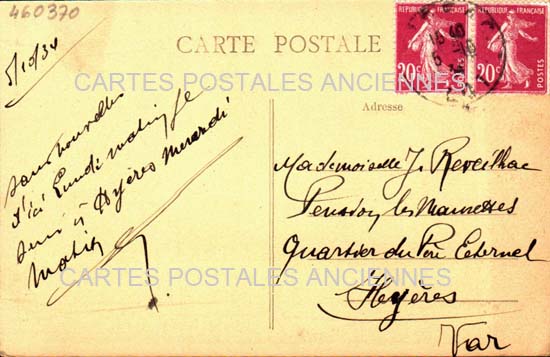 460370
5/10/34
CARTE POSTALE
RÉPUBLIQUE FRANÇAISE
20c
POSTES
RÉPUBLIQUE FRANÇAISE
20c
POSTES
CARTES POSTALES ANCIENNES
Adresse
sans nouvelles
d'ici Lundi matin je
suis à Hyères mercredi
matin
Mademoiselle J. Reveilhac
Pension les
Quartier du Père Eternel
Hyères
Var
CARTES POSTALES ANCIENNES